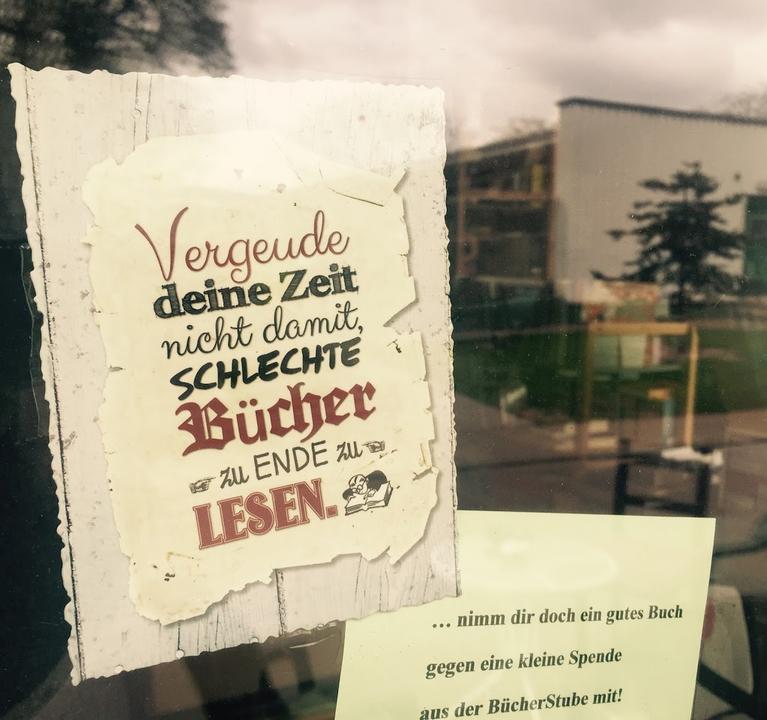 Vergeude
deine Zeit
nicht damit,
SCHLECHTE
Bücher
zu ENDE zu
LESEN.
... nimm dir doch ein gutes Buch
gegen eine kleine Spende
aus der BücherStube mit!